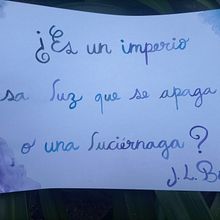 ¿Es un imperio
esa luz que se apaga
o una luciérnaga?
J.L.B